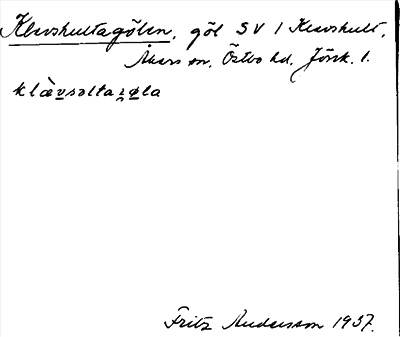 Klevshultagölen, göl SV i Klevshult,
Åkers sn, Östbo hd, Jönk. l.
klæ̀vsəltaɟøla
Fritz Andersson 1937.